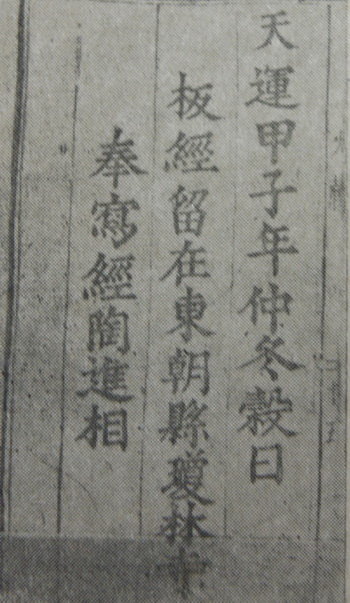 天運甲子年仲冬穀日
板經留在東朝縣瓊林寺
奉寫經陶進相